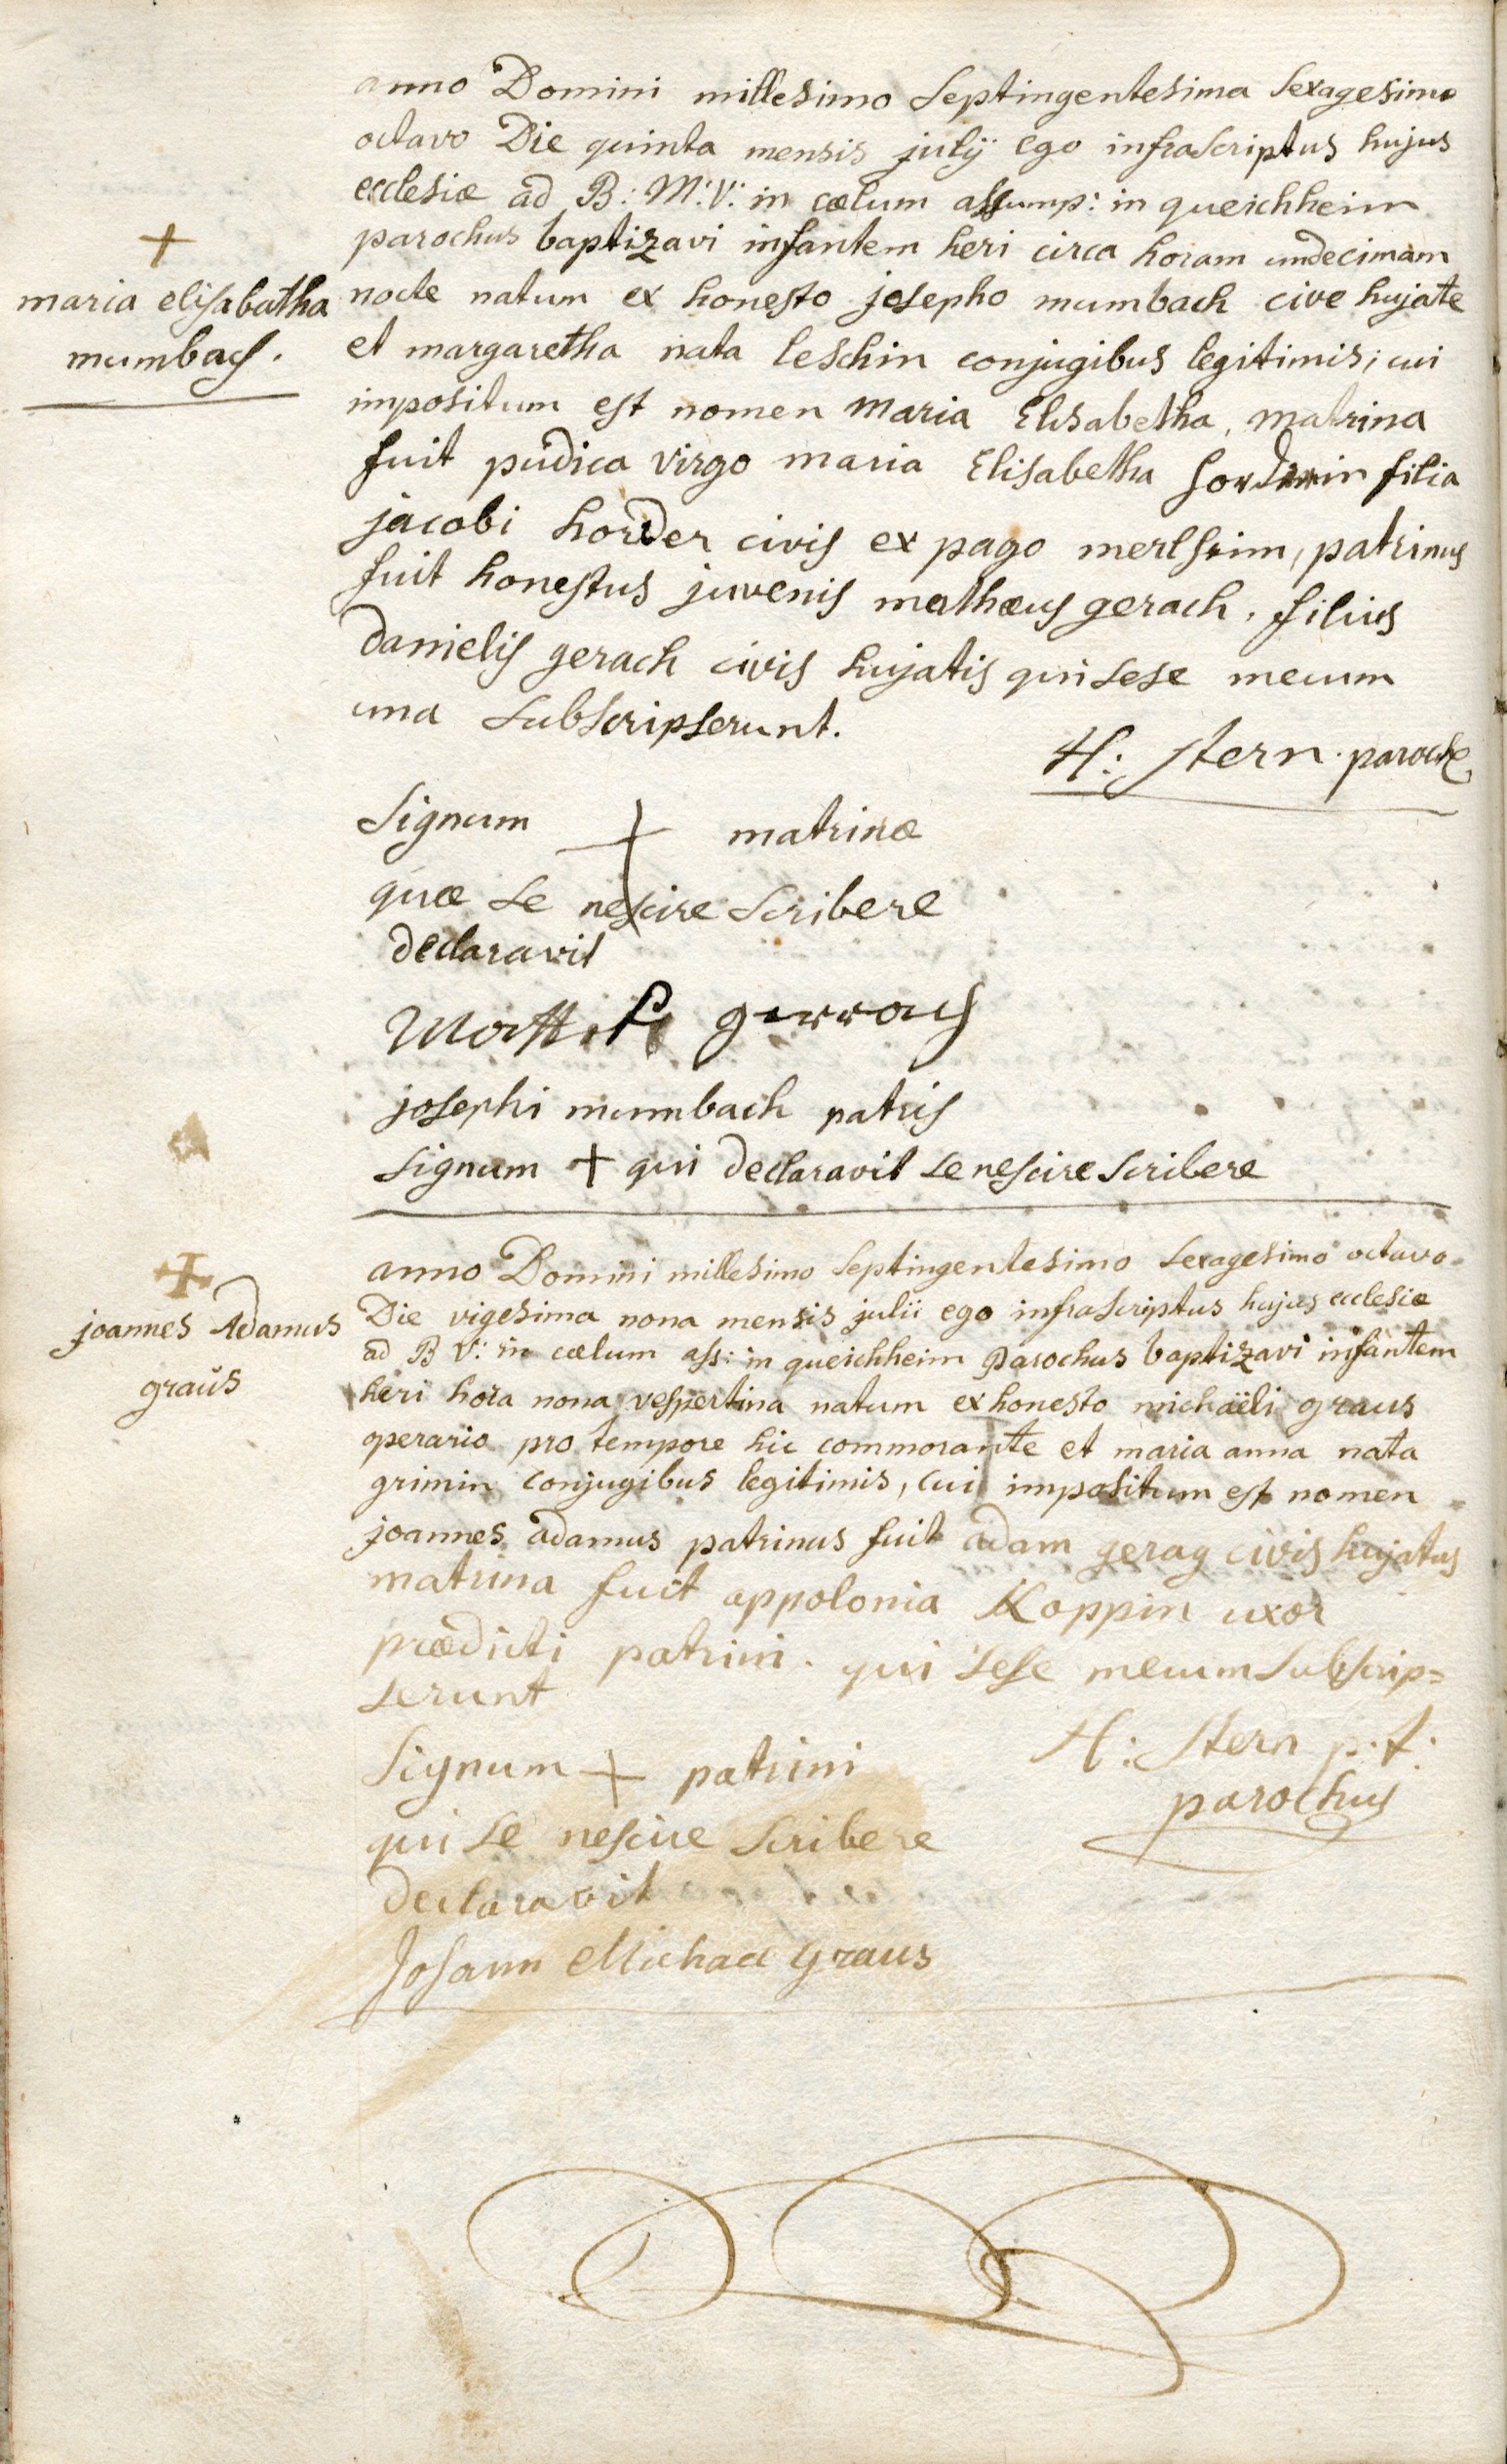 anno Domini millesimo Septingentesima Sexagesimo
octavo Die quinta mensis julÿ ego infraScriptus hujus
ecclesiæ ad B: M: V: in cælum assump: in queichheim
parochus baptizavi infantem heri circa horam undecimam
+
maria elisabatha
mumbach.
nocte natum ex honesto josepho mumbach cive hujate
et margaretha nata leschin conjugibus legitimis; cui
impositum est nomen maria Elisabetha, matrina
fuit pudica virgo maria Elisabetha horderin filia
jacobi horder civis ex pago merlheim, patrinus
fuit honestus juvenis mathæus gerach, filius
danielis gerach civis hujatis qui sese mecum
una subscripserunt.
H: Stern. paroch
Signum + matrinæ
quæ se nescire scribere
declaravit
gerrach
josephi mumbach patris
signum + qui declaravit se nescire scribere
+
joannes Adamus
graus
anno Domini millesimo septingentesimo sexagesimo octavo
Die vigesima nona mensis julii ego infrascriptus hujus ecclesiæ
ad B V: in cælum ass: in queichheim parochus baptizavi infantem
heri hora nona vespertina natum ex honesto michaëli graus
operario pro tempore hic commorante et maria anna nata
grimin conjugibus legitimis, cui impositum est nomen
joannes adamus patrinus fuit adam gerag civis hujatus
matrina fuit appolonia Koppin uxor
prædicti patrini. qui sese mecum subscrip=
serunt
H: Stern p.t.
parochus
Signum + patrini
qui se nescire scribere
declaravit
Johann Michael graus